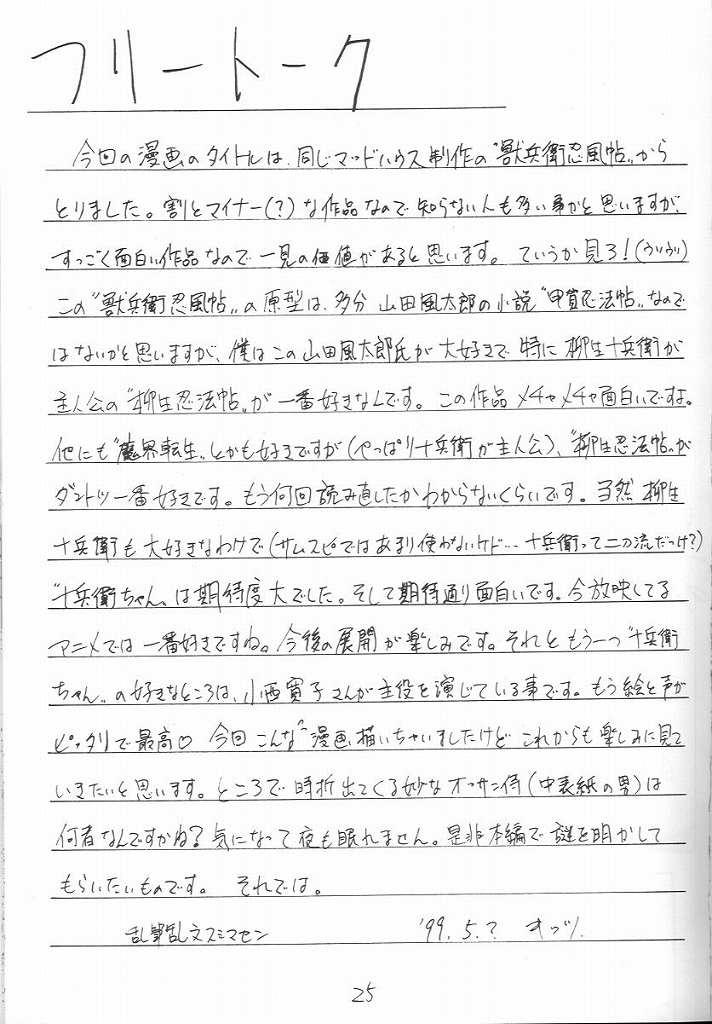 フリートーク
今回の漫画のタイトルは、同じマッドハウス制作の“獣兵衛忍風帖„から
とりました。割とマイナー(?)な作品なので知らない人も多い事かと思いますが、
すっごく面白い作品なので一見の価値があると思います。ていうか見ろ!(ウリウリ)
この“獣兵衛忍風帖„の原型は、多分山田風太郎の小説“甲賀忍法帖„なので
はないかと思いますが、僕はこの山田風太郎氏が大好きで特に柳生十兵衛が
主人公の“柳生忍法帖„が一番好きなんです。この作品メチャメチャ面白いですよ。
他にも“魔界転生„とかも好きですが(やっぱり十兵衛が主人公)、“柳生忍法帖„が
ダントツ一番好きです。もう何回読み直したかわからないくらいです。当然柳生
十兵衛も大好きなわけで(サムスピではあまり使わないケド…十兵衛って二刀流だっけ?)
“十兵衛ちゃん„は期待度大でした。そして期待通り面白いです。今放映してる
アニメでは一番好きですね。今後の展開が楽しみです。それともう一つ“十兵衛
ちゃん„の好きなところは、小西寛子さんが主役を演じている事です。もう絵と声が
ピッタリで最高♡ 今回こんな漫画描いちゃいましたけどこれからも楽しみに見て
いきたいと思います。ところで時折出てくる妙なオッサン侍(中表紙の男)は
何者なんですかね?気になって夜も眠れません。是非本編で謎を明かして
もらいたいものです。それでは。
乱筆乱文スミマセン '99.5.?
25